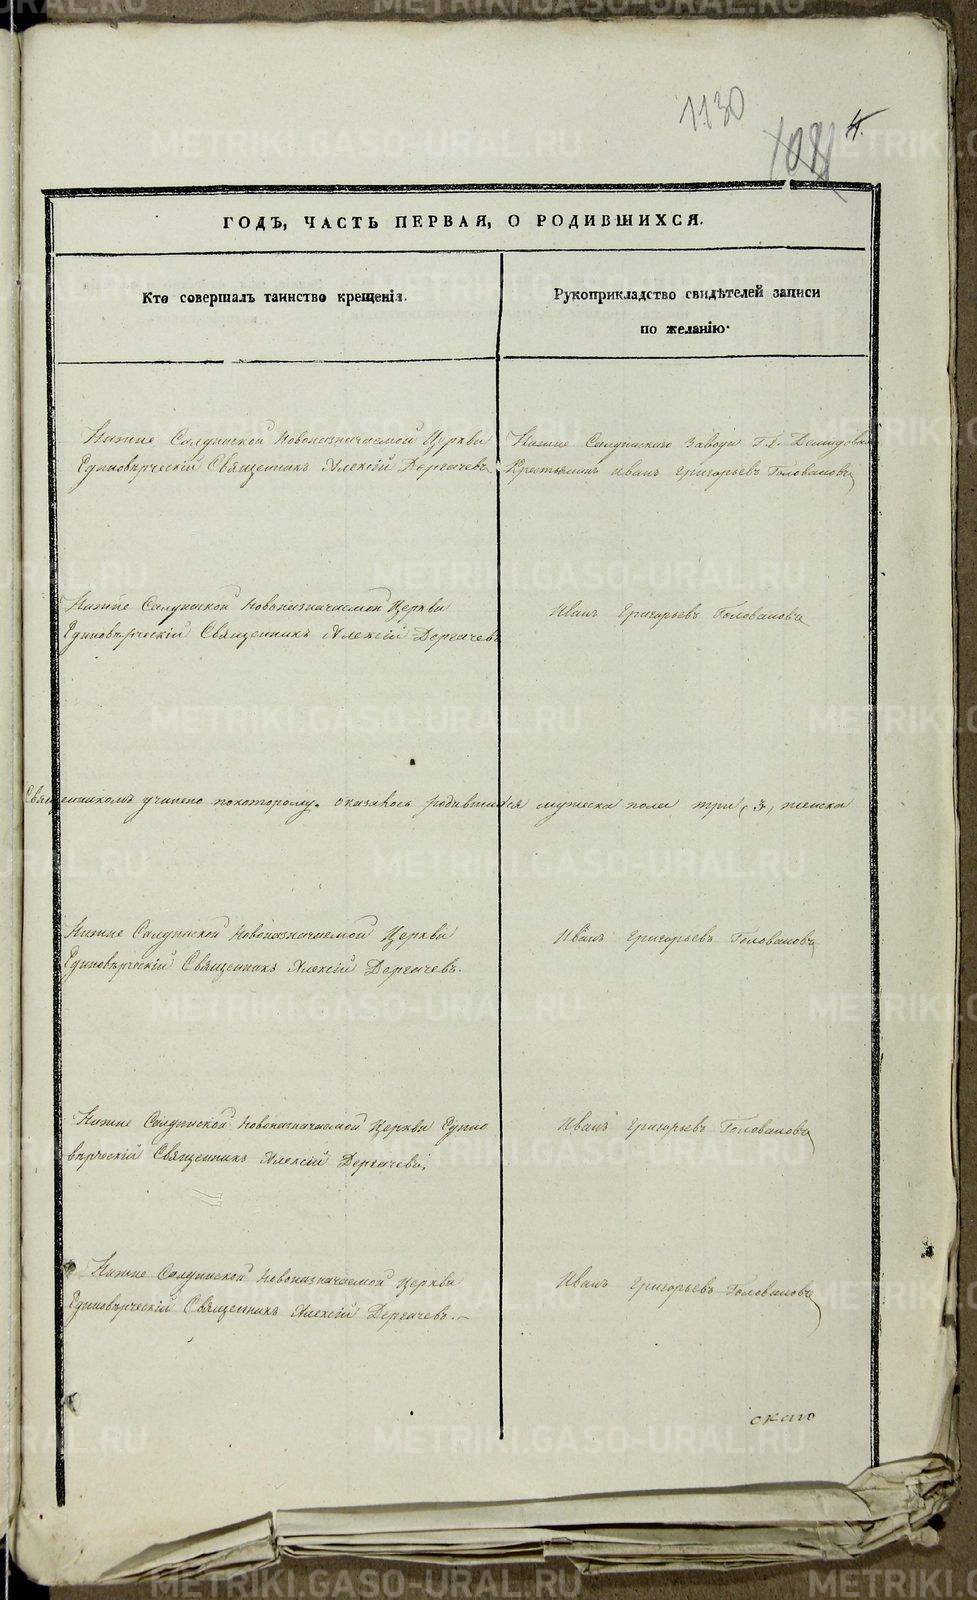 1130
4.
ГОДЪ, ЧАСТЬ ПЕРВАЯ, О РОДИВШИХСЯ.
Кто совершалъ таинство крещенія.
Рукоприкладство свидѣтелей записи
по желанію.
Нижне Салдинской Новоназначаемой Церкви
Единовѣрческій Священникъ Алексій Дергачевъ
Нижне Салдинскаго Завода Г.г. Демидовыхъ
Крестьянинъ Иванъ Григорьевъ Головановъ
Нижне Салдинской Новоназначаемой Церкви
Единовѣрческій Священникъ Алексій Дергачевъ
Иванъ Григорьевъ Головановъ
Священникомъ учинено покоторому оказалось родившихся мужеска пола три, 3, женска
Нижне Салдинской Новоназначаемой Церкви
Единовѣрческій Священникъ Алексій Дергачевъ.
Иванъ Григорьевъ Головановъ
Нижне Салдинской Новоназначаемой Церкви Едино
вѣрческій Священникъ Алексій Дергачевъ
Иванъ Григорьевъ Головановъ
Нижне Салдинской Новоназначаемой Церкви
Единовѣрческій Священникъ Алексій Дергачевъ.
Иванъ Григорьевъ Головановъ
скаго
METRIKI.GASO-URAL.RU